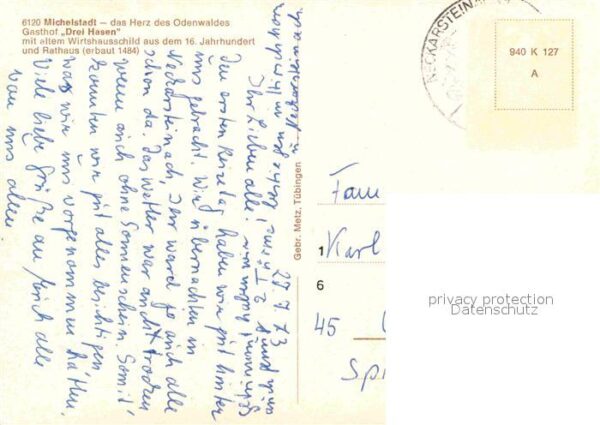 6120 Michelstadt – das Herz des Odenwaldes
Gasthof „Drei Hasen"
mit altem Wirtshausschild aus dem 16. Jahrhundert
und Rathaus (erbaut 1484)
NECKARSTEINA
940 K 127
A
Gebr. Metz, Tübingen
27.7.73
Ihr Lieben alle!
Den ersten Reisetag haben wir gut hinter
uns gebracht. Wir übernachten in
Neckarsteinach, Ihr ward ja auch alle
schon da. Das Wetter war auch trocken
wenn auch ohne Sonnenschein. Somit
konnten wir gut alles besichtigen,
was wir uns vorgenommen hatten.
Viele liebe Grüße an Euch alle
von uns allen
in Hirschhorn
u. Neckarsteinach
Fam
1 Karl
6
45
Sp
privacy protection
Datenschutz